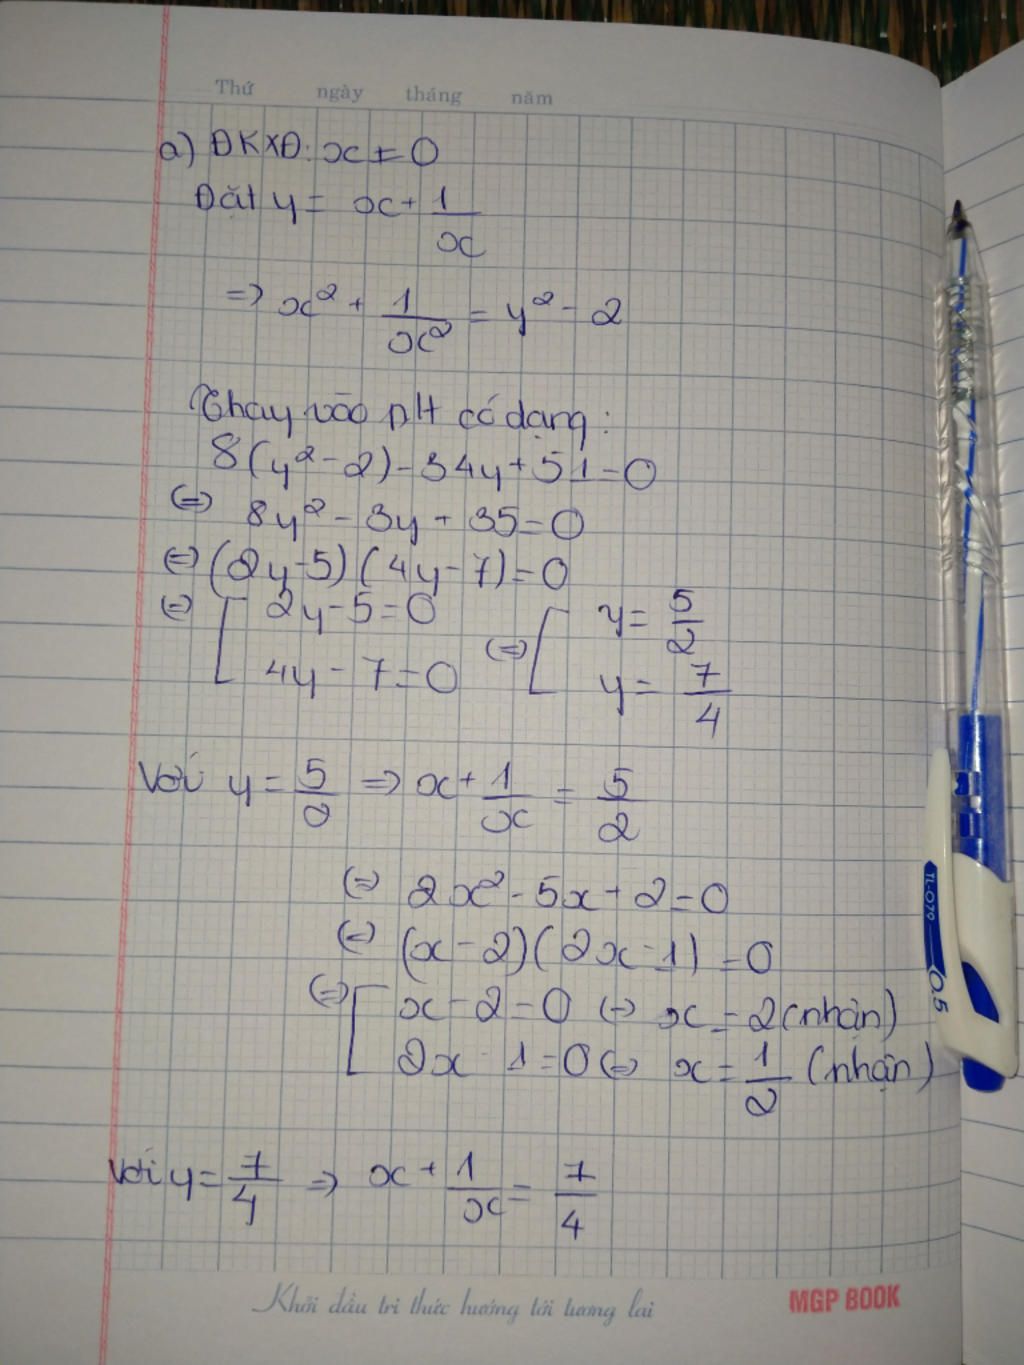 Thứ ngày tháng năm
a) ĐKXĐ: x ≠ 0
Đặt y = x + 1/x
=> x² + 1/x² = y² - 2
Thay vào pt có dạng:
8(y² - 2) - 34y + 51 = 0
(=) 8y² - 3y + 35 = 0
(=) (2y - 5)(4y - 7) = 0
(=) [ 2y - 5 = 0 (=) [ y = 5/2
4y - 7 = 0 y = 7/4
Với y = 5/2 => x + 1/x = 5/2
(=) 2x² - 5x + 2 = 0
(=) (x - 2)(2x - 1) = 0
(=) [ x - 2 = 0 (=) x = 2 (nhận)
2x - 1 = 0 (=) x = 1/2 (nhận)
Với y = 7/4 => x + 1/x = 7/4
Khởi đầu tri thức hướng tới tương lai
MGP BOOK
TL-079
0.5